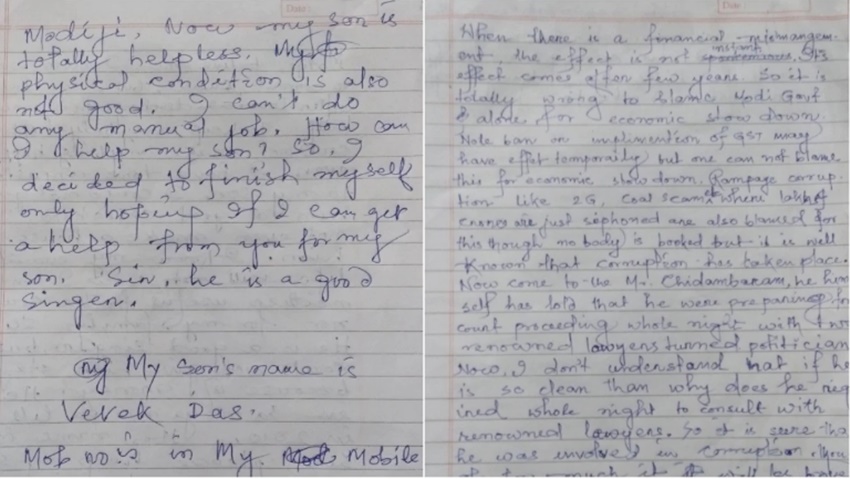 Date:
Modiji, Now my son is
totally helpless. My
physical condition is also
not good. I can't do
any manual job. How can
I help my son? So, I
decided to finish myself
only hoping If I can get
a help from you for my
son. Sir, he is a good
Singer.
My Son's name is
Vevek Das.
Mob no is in My Mobile
Date
When there is a financial mismangem-
ent, the effect is not instant. Its
effect comes after few years. So it is
totally wrong to blame Modi Govt
alone for economic slow down.
Note ban on implimention of GST may
have effet temporaily but one can not blame
this for economic slow down. Rampage corrup-
tion like 2G, Coal scam where
crores are just sephoned are also blamed for
this though no body is booked but it is well
known that corruption has taken place.
Now come to the Mr. Chidambaram, he him
self has told that he were preparing for
court proceeding whole night with two
renowned lawyers turned politician
Now, I don't understand that if he
is so clean than why does he req
ired whole night to consult with
renowned lawyers. So it is sure tha
he was involved in corruption. You
much it will be have